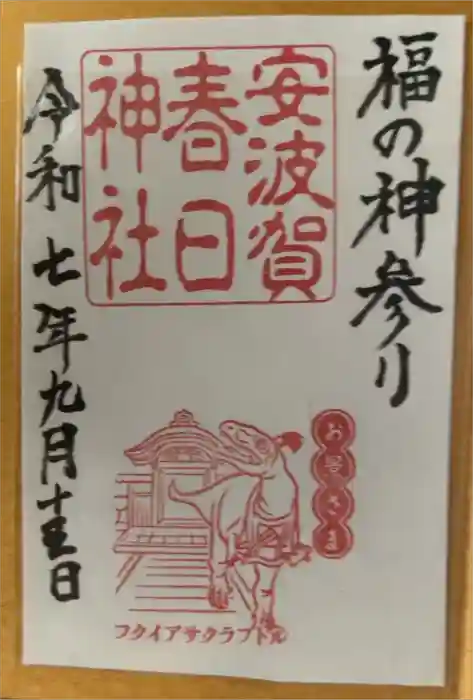 福の神参り
安波賀
春日
神社
令和七年九月十五日
お昼さま
フクイアサクラプトル